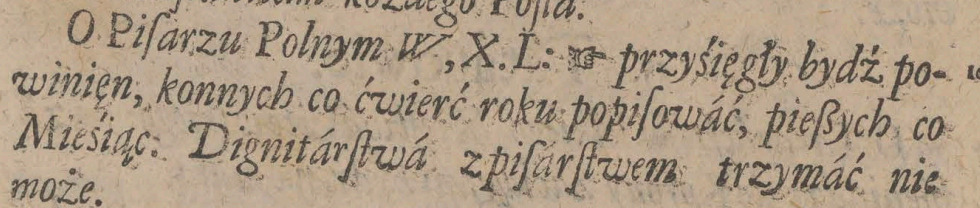 każdego Posła.
O Piſarzu Polnym W, X. L: ☞ przyśięgły bydź po-
winięn, konnych co ćwierć roku popiſowáć, pießych co
Mieśiąc. Dignitárſtwá z piſarſtwem trzymáć nie
może.